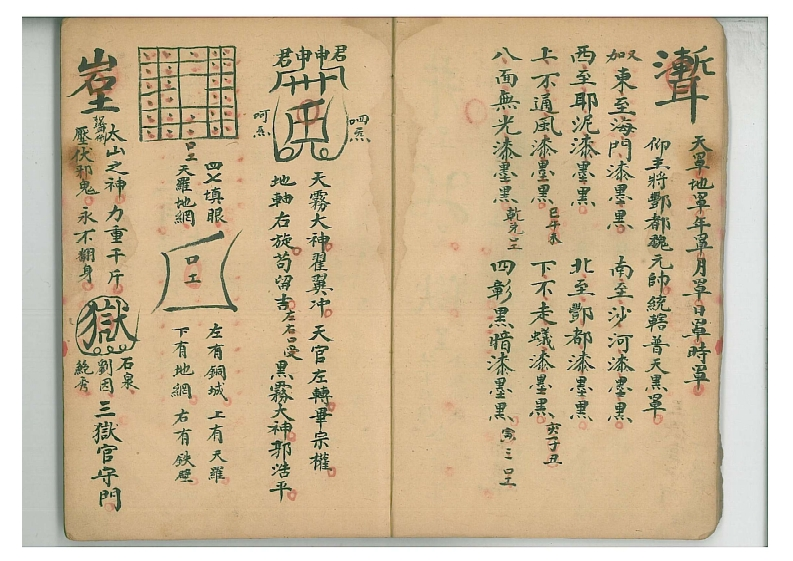 天罩地罩年罩月罩日罩時罩
仰主將酆都魏元帥統轄普天黑罩
東至海門漆墨黑 南至沙河漆墨黑
西至耶泥漆墨黑 北至酆都漆墨黑
上不通風漆墨黑 巳午未 下不走蟻漆墨黑 亥子丑
八面無光漆墨黑 四彰黑暗漆墨黑
君申申君
呬炁
呵炁
天霧大神翟翼冲 天官左轉畢宗權
地軸右旋苟留吉 左右口受 黑霧大神郭浩平
四七填眼
口工
天羅地網
口工
左有銅城 上有天羅
下有地網 右有鉄壁
太山之神 力重千斤
壓伏邪鬼 永不翻身
獄
石泉
劉因
鮑秀
三獄官守門